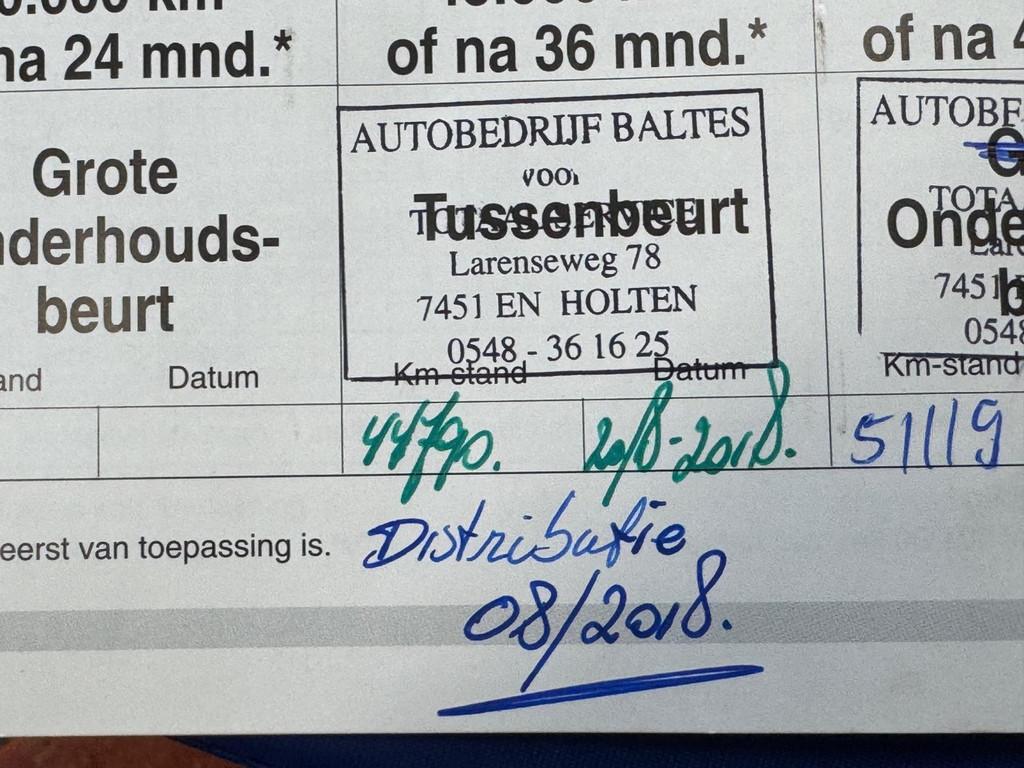 na 24 mnd.*
of na 36 mnd.*
of na 4
Grote
nderhouds-
beurt
and Datum
AUTOBEDRIJF BALTES
voor
Tussenbeurt
Larenseweg 78
7451 EN HOLTEN
0548 - 36 16 25
Km-stand Datum
44790. 20/8-2018.
AUTOBE
TOTA
Onde
7451
0548
Km-stand
51119
eerst van toepassing is.
Distributie
08/2018.